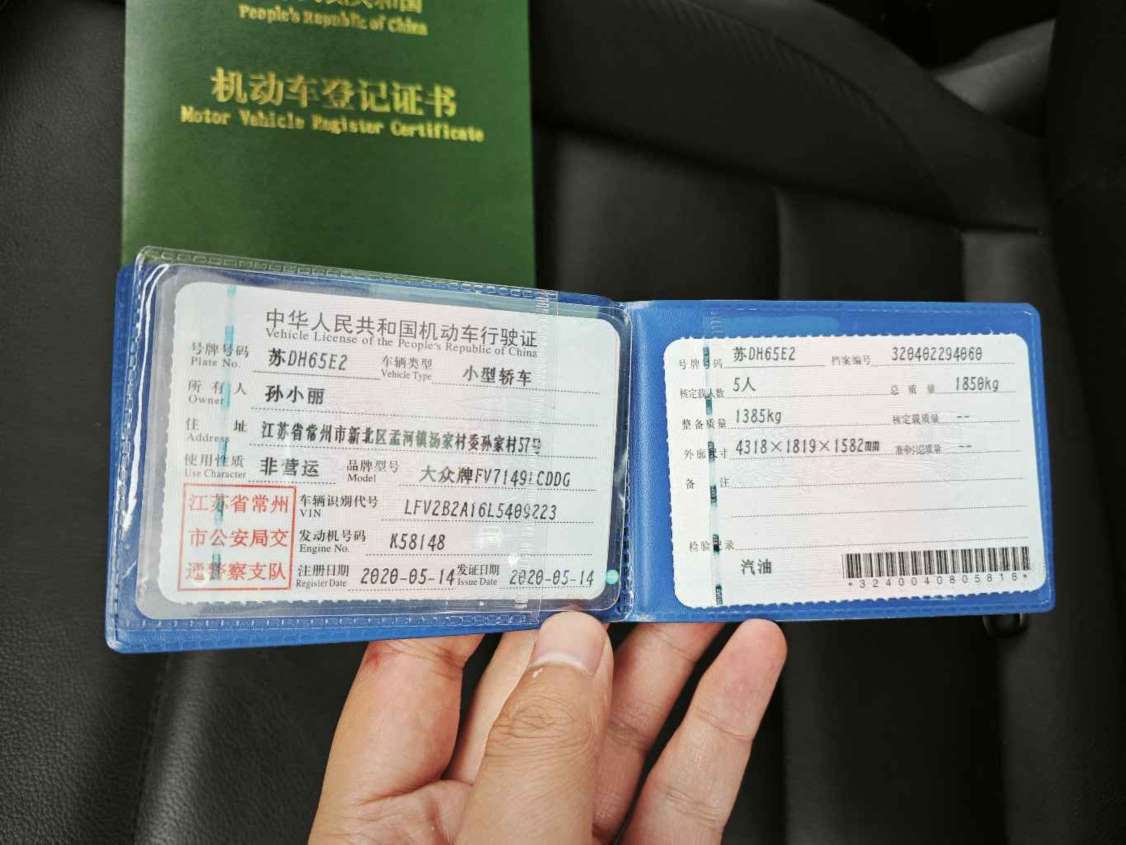 People's Republic of China
机动车登记证书
Motor Vehicle Register Certificate
中华人民共和国机动车行驶证
Vehicle License of the People's Republic of China
号牌号码 苏DH65E2 车辆类型 小型轿车
Plate No. Vehicle Type
所有人 孙小丽
Owner
住址 江苏省常州市新北区孟河镇汤家村委孙家村57号
Address
使用性质 非营运 品牌型号 大众牌FV7149LCDDG
Use Character Model
江苏省常州
市公安局交
通警察支队
车辆识别代号 LFV2B2A16L5409223
VIN
发动机号码 K58148
Engine No.
注册日期 2020-05-14 发证日期 2020-05-14
Register Date Issue Date
号牌号码 苏DH65E2 档案编号 320402294060
核定载人数 5人 总质量 1850kg
整备质量 1385kg 核定载质量 --
外廓尺寸 4318×1819×1582mm 准牵引总质量 --
备注
检验记录
汽油
*3240040805816*